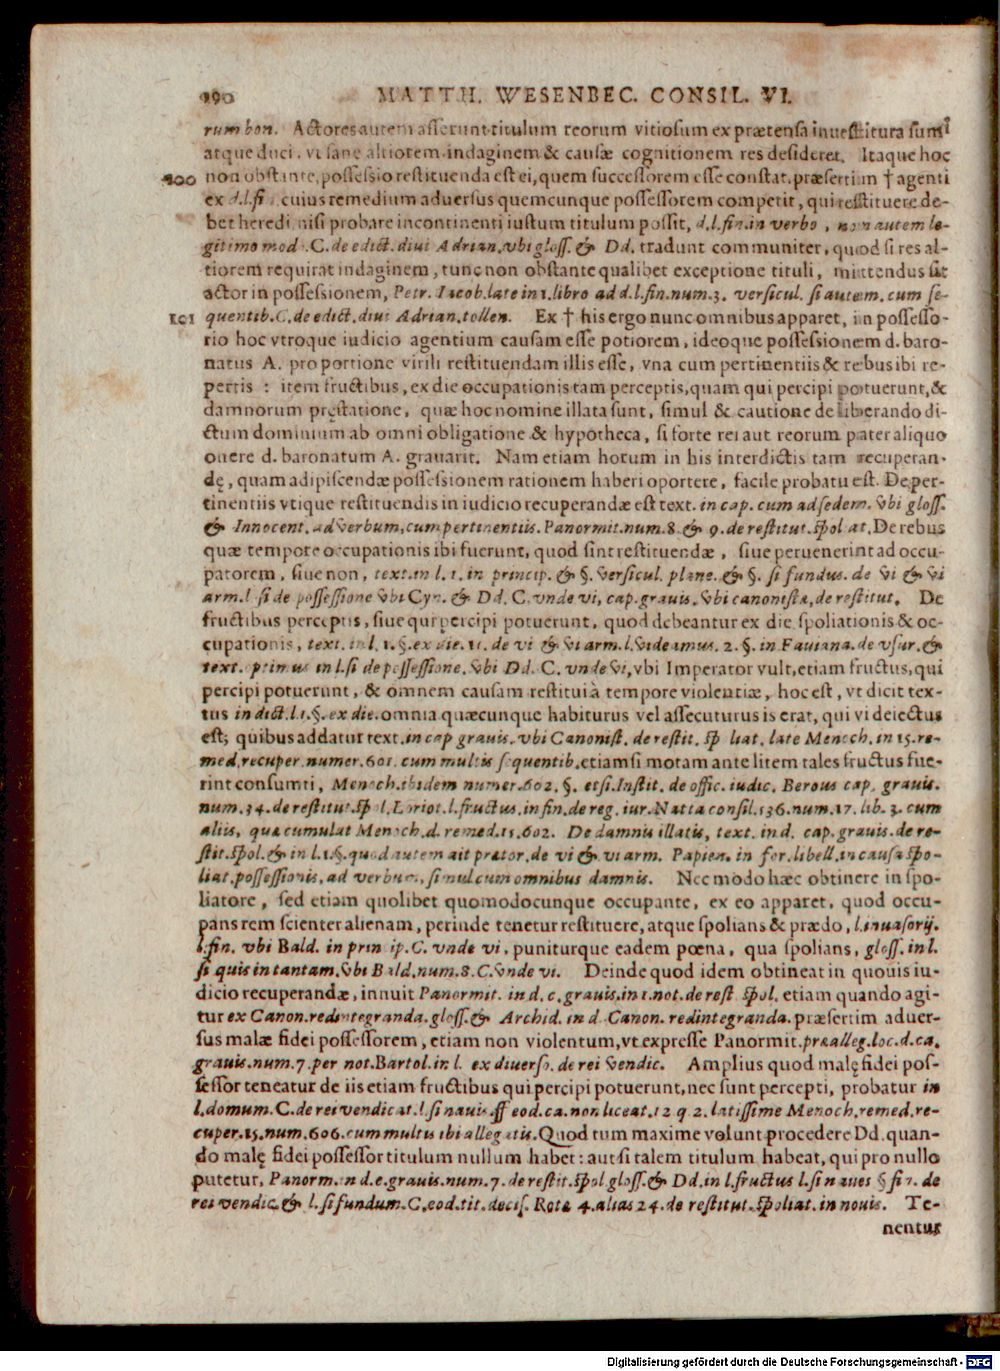 190 MATTH. WESENBEC. CONSIL. VI.
rum bon. Actores autem asserunt titulum reorum vitiosum ex prætensa inuestitura sumi
atque duci, vt sane altiorem indaginem & causæ cognitionem res desideret. Itaque hoc
100 non obstante, possessio restituenda est ei, quem successorem esse constat, præsertim † agenti
ex d.l.fi . cuius remedium aduersus quemcunque possessorem competit, qui restituere de-
bet heredi, nisi probare incontinenti iustum titulum possit, d.l.fin.in verbo, non autem le-
gitimo mod . C. de edict. diui Adrian. vbi gloss. & Dd. tradunt communiter, quod si res al-
tiorem requirat indaginem, tunc non obstante qualibet exceptione tituli, mittendus sit
actor in possessionem, Petr. Iacob. late in 1. libro ad d.l.fin.num.3. versicul. si autem. cum se-
101 quentib. C. de edict. diui Adrian. tollen. Ex † his ergo nunc omnibus apparet, in possesso-
rio hoc vtroque iudicio agentium causam esse potiorem, ideoque possessionem d. baro-
natus A. pro portione virili restituendam illis esse, vna cum pertinentiis & rebus ibi re-
pertis : item fructibus, ex die occupationis tam perceptis, quam qui percipi potuerunt, &
damnorum pręstatione, quæ hoc nomine illata sunt, simul & cautione de liberando di-
ctum dominium ab omni obligatione & hypotheca, si forte rei aut reorum pater aliquo
onere d. baronatum A. grauarit. Nam etiam horum in his interdictis tam recuperan-
dę, quam adipiscendæ possessionem rationem haberi oportere, facile probatu est. De per-
tinentiis vtique restituendis in iudicio recuperandæ est text. in cap. cum ad sedem. vbi gloss.
& Innocent. ad verbum, cum pertinentiis. Panormit. num. 8. & 9. de restitut. spol at. De rebus
quæ tempore occupationis ibi fuerunt, quod sint restituendæ, siue peruenerint ad occu-
patorem, siue non, text. in l. 1. in princip. & §. versicul. plane. & §. si fundus. de vi & vi
arm. l. si de possessione vbi Cyn. & Dd. C. vnde vi, cap. grauis. vbi canonistæ, de restitut. De
fructibus perceptis, siue qui percipi potuerunt, quod debeantur ex die spoliationis & oc-
cupationis, text. in l. 1. §. ex die. 11. de vi & vi arm. l. videamus. 2. §. in Fauiana. de vsur. &
text. primus in l. si de possessione. vbi Dd. C. vnde vi, vbi Imperator vult, etiam fructus, qui
percipi potuerunt, & omnem causam restitui à tempore violentiæ, hoc est, vt dicit tex-
tus in dict. l. 1. §. ex die. omnia quæcunque habiturus vel assecuturus is erat, qui vi deiectus
est; quibus addatur text. in cap grauis. vbi Canonist. de restit. sp liat. late Menoch. in 15. re-
med. recuper. numer. 601. cum multis sequentib. etiamsi motam ante litem tales fructus fue-
rint consumti, Menoch. ibidem numer. 602. §. etsi. Instit. de offic. iudic. Berous cap. grauis.
num. 34. de restitut. spol. Loriot. l. fructus. in fin. de reg. iur. Natta consil. 136. num. 17. lib. 3. cum
aliis, quæ cumulat Menoch. d. remed. 15. 602. De damnis illatis, text. in d. cap. grauis. de re-
stit. spol. & in l. 1. §. quod autem ait prætor. de vi & vi arm. Papien. in for. libell. in causa spo-
liat. possessionis. ad verbum, simul cum omnibus damnis. Nec modo hæc obtinere in spo-
liatore, sed etiam quolibet quomodocunque occupante, ex eo apparet, quod occu-
pans rem scienter alienam, perinde tenetur restituere, atque spolians & prædo, l. inuasorij.
l. fin. vbi Bald. in prin ip. C. vnde vi, puniturque eadem pœna, qua spolians, gloss. in l.
si quis in tantam. vbi Bald. num. 8. C. vnde vi. Deinde quod idem obtineat in quouis iu-
dicio recuperandæ, innuit Panormit. in d. c. grauis. in 1. not. de rest spol. etiam quando agi-
tur ex Canon. redintegranda. gloss. & Archid. in d Canon. redintegranda. præsertim aduer-
sus malæ fidei possessorem, etiam non violentum, vt expresse Panormit. præalleg. loc. d. ca.
grauis. num. 7. per not. Bartol. in l. ex diuerso. de rei vendic. Amplius quod malę fidei pos-
sessor teneatur de iis etiam fructibus qui percipi potuerunt, nec sunt percepti, probatur in
l. domum. C. de rei vendicat. l. si nauis. ff eod. ca. non liceat. 12 q 2. latissime Menoch. remed. re-
cuper. 15. num. 606. cum multis ibi allegatis. Quod tum maxime volunt procedere Dd. quan-
do malę fidei possessor titulum nullum habet : aut si talem titulum habeat, qui pro nullo
putetur, Panorm. in d. c. grauis. num. 7. de restit. spol. gloss. & Dd. in l. fructus l. si naues § fin. de
rei vendic. & l. si fundum. C. eod. tit. decis. Rotæ 4. alias 24. de restitut. spoliat. in nouis. Te-
nentur
Digitalisierung gefördert durch die Deutsche Forschungsgemeinschaft - DFG